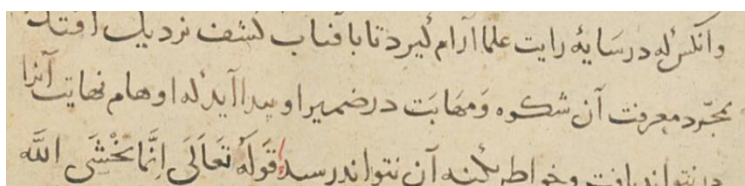 وانکس که در سایۀ رایت علما آرام گیرد تا بافتاب کشف نزدیک افتد
بمجرد معرفت آن شکوه و مهابت در ضمیر او پیدا آید که اوهام نهایت آنرا
در نتواند یافت و خواطر بکنه آن نتواند رسید قوله تعالی انما یخشی الله